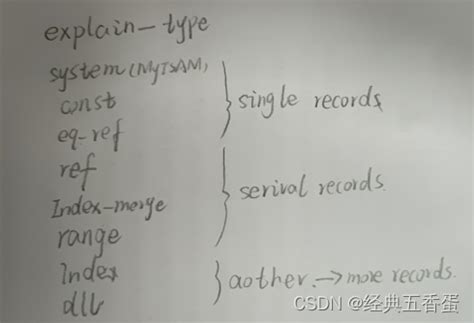 explain-type
system(MyISAM)
const
eq-ref
} single records
ref
Index-merge
range
} serival records.
Index
dll
} aother. → more records.
CSDN @经典五香蛋